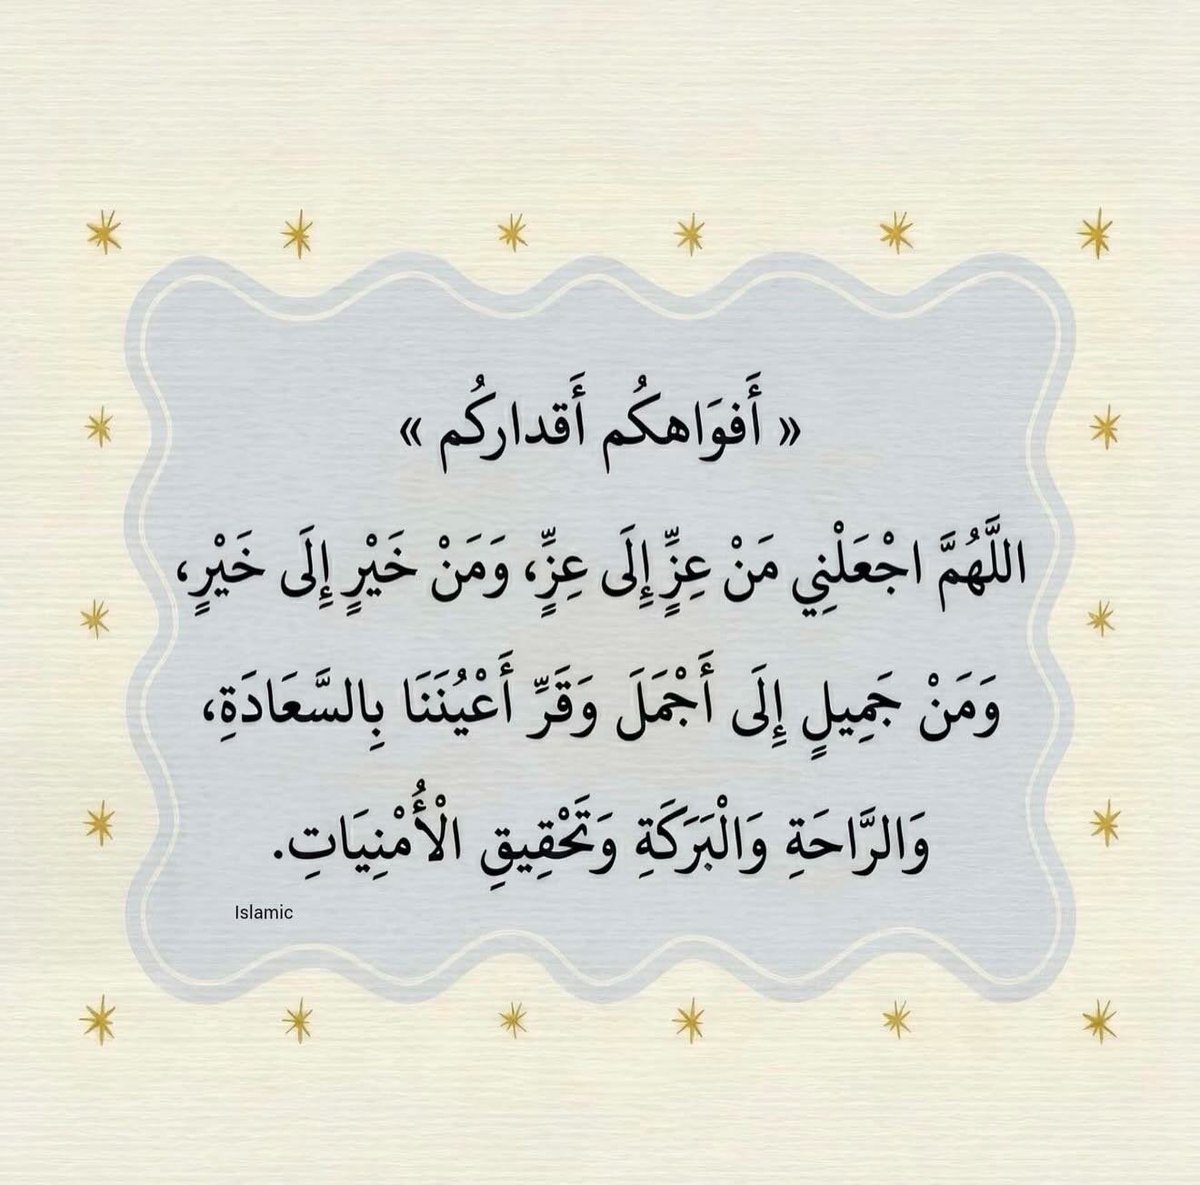 « أَفوَاهكُم أَقدارکُم »
اللَّهُمَّ اجْعَلْنِي مَنْ عِزٍّ إِلَى عِزٍّ، وَمَنْ خَيْرٍ إِلَى خَيْرٍ،
وَمَنْ جَمِيلٍ إِلَى أَجْمَلَ وَقَرِّ أَعْيُنَنَا بِالسَّعَادَةِ،
وَالرَّاحَةِ وَالْبَرَكَةِ وَتَحْقِيقِ الْأُمْنِيَاتِ.
Islamic